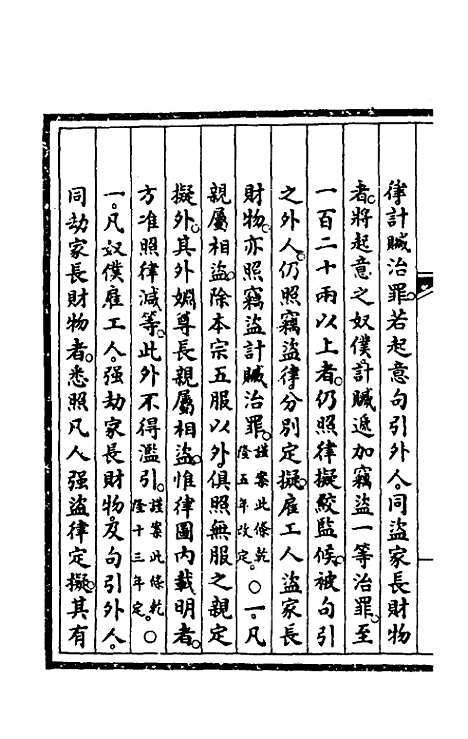 律計贓治罪若起意句引外人同盜家長財物
者將起意之奴僕計贓遞加竊盜一等治罪至
一百二十兩以上者仍照律擬絞監候被句引
之外人仍照竊盜律分別定擬雇工人盜家長
財物亦照竊盜計贓治罪謹案此條乾隆五年改定○一凡
親屬相盜除本宗五服以外俱照無服之親定
擬外其外姻尊長親屬相盜惟律圖內載明者
方准照律減等此外不得濫引謹案此條乾隆十三年定○
一凡奴僕雇工人強劫家長財物及句引外人
同劫家長財物者悉照凡人強盜律定擬其有